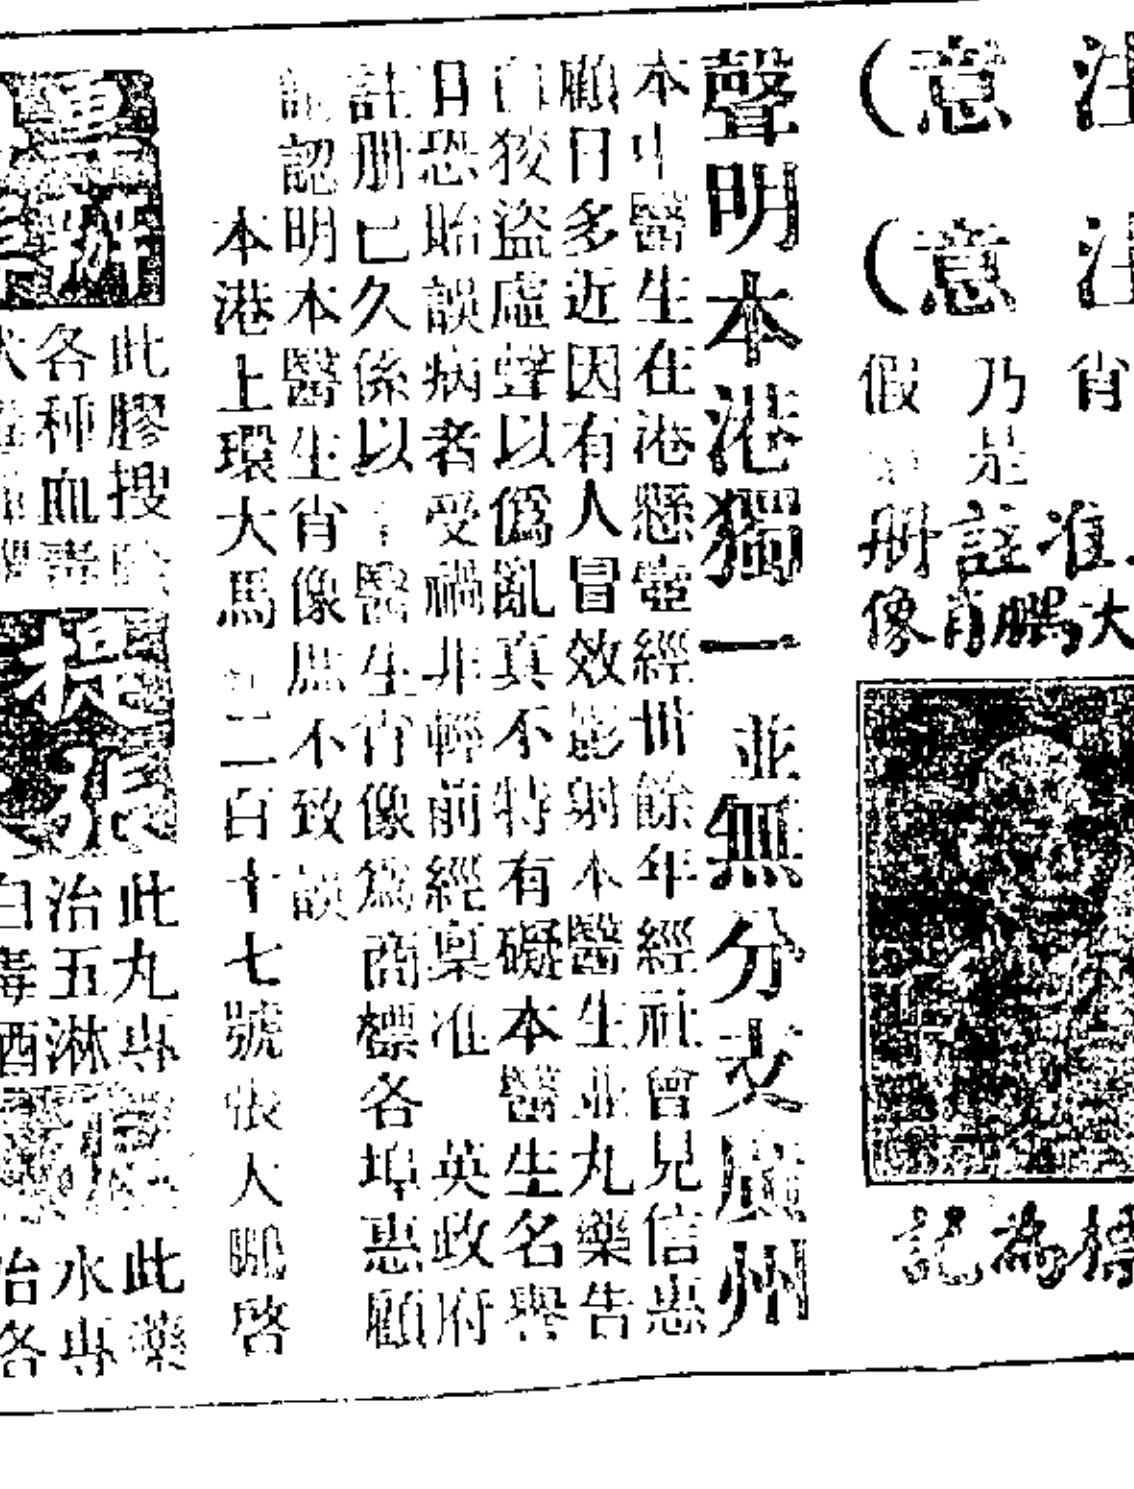 注意(
注意(
肖乃假
是
准註册
大鵬肖像
標為記
聲明本港獨一並無分支廣州
本中醫生在港懸壺經卅餘年經社會見信惠
顧日多近因有人冒效影射本醫生並丸藥告
白狡盜虛聲以偽亂真不特有礙本醫生名譽
且恐貽誤病者受禍非輕前經稟准 英政府
註册已久係以 醫生肖像為商標各埠惠顧
認明本醫生肖像庶不致誤
本港上環大馬 二百十七號張大鵬啓
此膠搜
各種血毒
此丸專
治五淋
白毒
此藥
水專
治各